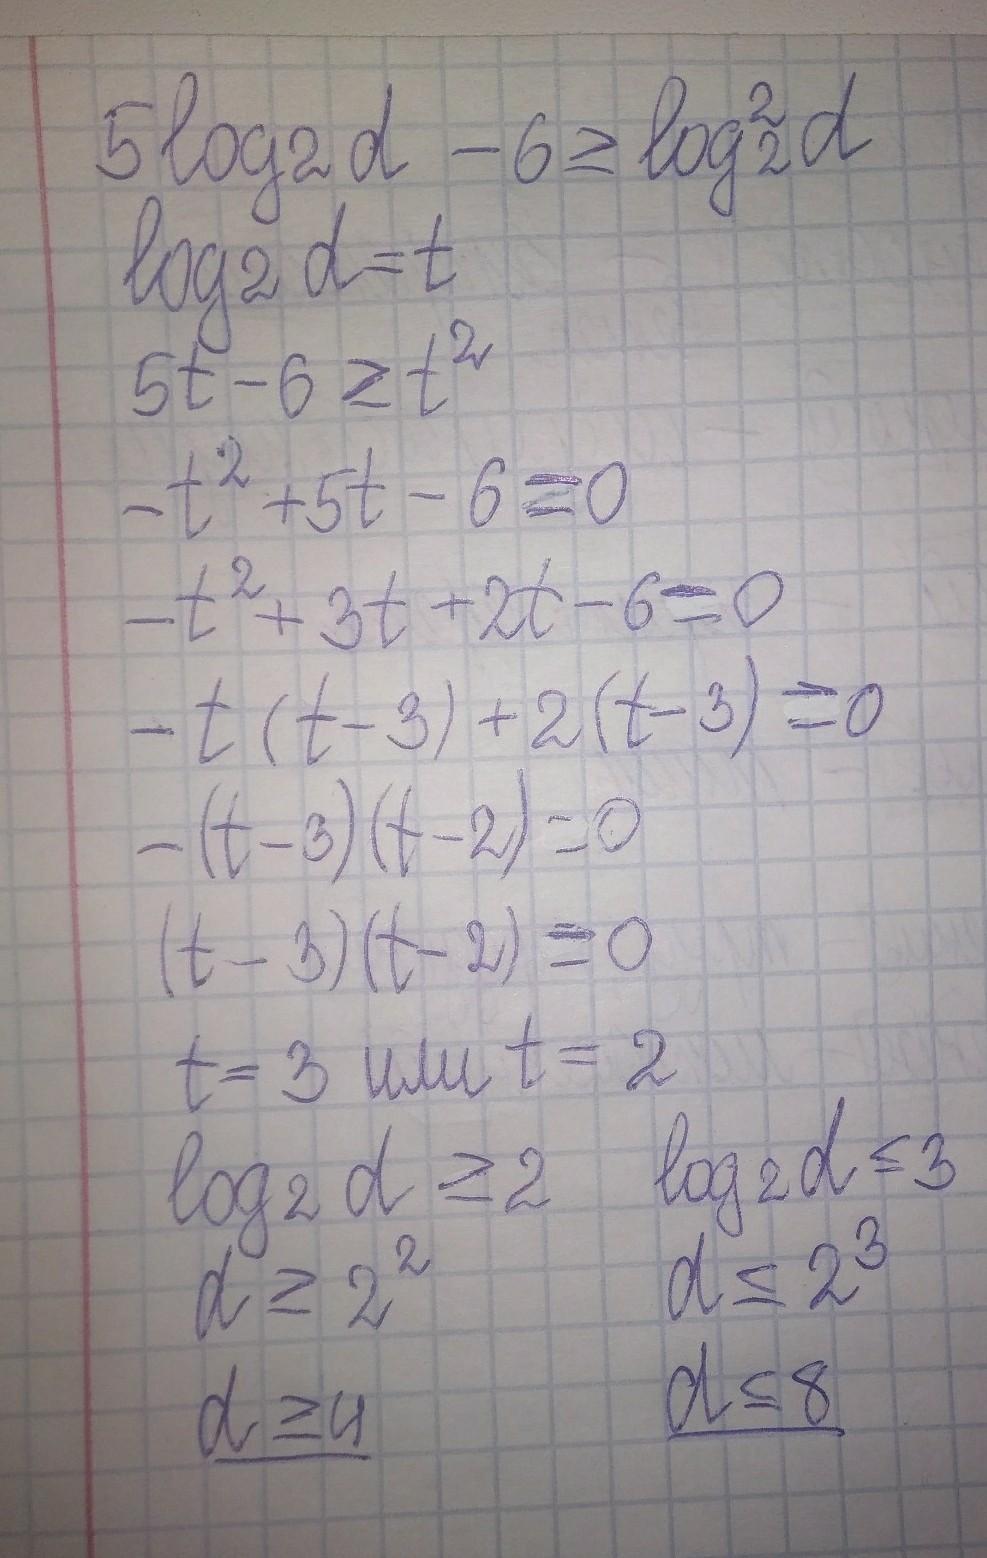 5log₂d - 6 ≥ log₂²d
log₂d = t
5t - 6 ≥ t²
-t² + 5t - 6 = 0
-t² + 3t + 2t - 6 = 0
-t(t - 3) + 2(t - 3) = 0
-(t - 3)(t - 2) = 0
(t - 3)(t - 2) = 0
t = 3 или t = 2
log₂d ≥ 2 log₂d ≤ 3
d ≥ 2² d ≤ 2³
d ≥ 4 d ≤ 8